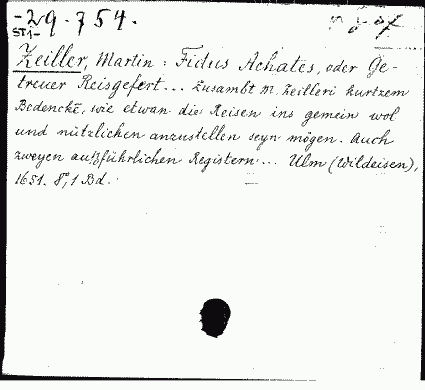 -29.754.
STJ-
Zeiller, Martin: Fidus Achates, oder Ge-
treuer Reisgefert... Zusambt M. Zeilleri kurtzem
Bedenckē, wie etwan die Reisen ins gemein wol
und nützlichen anzustellen seyn mögen. Auch
zweyen außführlichen Registern... Ulm (Wildeisen),
1651. 8°, 1 Bd.